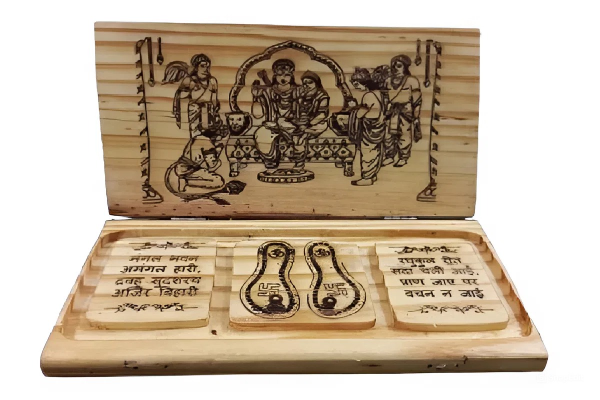 मंगल भवन
अमंगल हारी,
द्रवहु सुदसरथ
अजिर बिहारी
रघुकुल रीत
सदा चली आई,
प्राण जाए पर
वचन न जाई